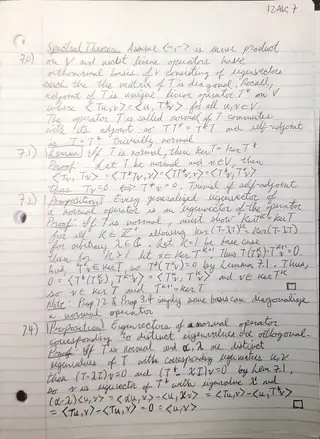 12AK7
7.0) Spectral Theorem Assume <-,-> is inner product
on V and most linear operators have
orthonormal basis of V consisting of eigenvectors
such that the matrix of T is diagonal. Recall,
adjoint of T is unique linear operator T* on V
where <Tu,v> = <u,T*v> for all u,v∈V
The operator T is called normal if T commutes
with its adjoint so TT* = T*T and self-adjoint
so T = T* trivially normal
7.1) Lemma: If T is normal, then kerT = kerT*
Proof: Let T be normal and v∈V, then
<Tv,Tv> = <T*Tv,v> = <TT*v,v> = <T*v,T*v>
thus Tv=0 ⟺ T*v=0. Trivial if self-adjoint
7.2) Proposition: Every generalized eigenvector of
a normal operator is an eigenvector of the operator
Proof: If T is normal, must show kerT^k = kerT
for all k∈Z+ allowing ker(T-λI)^k = ker(T-λI)
for arbitrary λ∈C. Let k=1 be base case
then for k>1 let v∈
but, T^k v ∈ kerT so T*(T^k v)=0 by Lemma 7.1. Thus,
so v∈kerT^k and
Note: Prop 7.2 & Prop 3.4 imply some basis can diagonalize
a normal operator
7.4) Proposition: Eigenvectors of a normal operator
corresponding to distinct eigenvalues are orthogonal.
Proof: If T is normal and α,λ are distinct
eigenvalues of T with corresponding eigenvectors u,v
then (T-λI)v=0 and by Lem 7.1,
so v is eigenvector of T* with eigenvalue
(α-λ)<u,v> = <αu,v> - <u, = <Tu,v> - <u,T*v>
= <Tu,v> - <Tu,v> = 0 = <u,v>